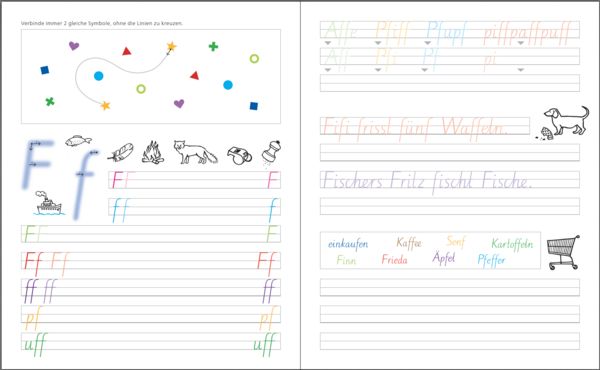 Verbinde immer 2 gleiche Symbole, ohne die Linien zu kreuzen.
F f
F F F
f f f
F F F
Ff Ff Ff
ff ff ff
pf pf
uff uff
Affe Pfiff Pfupf piffpaffpuff
Aff Pfi Pf pi
Fifi frisst fünf Waffeln.
Fischers Fritz fischt Fische.
einkaufen Kaffee Senf Kartoffeln
Finn Frieda Äpfel Pfeffer